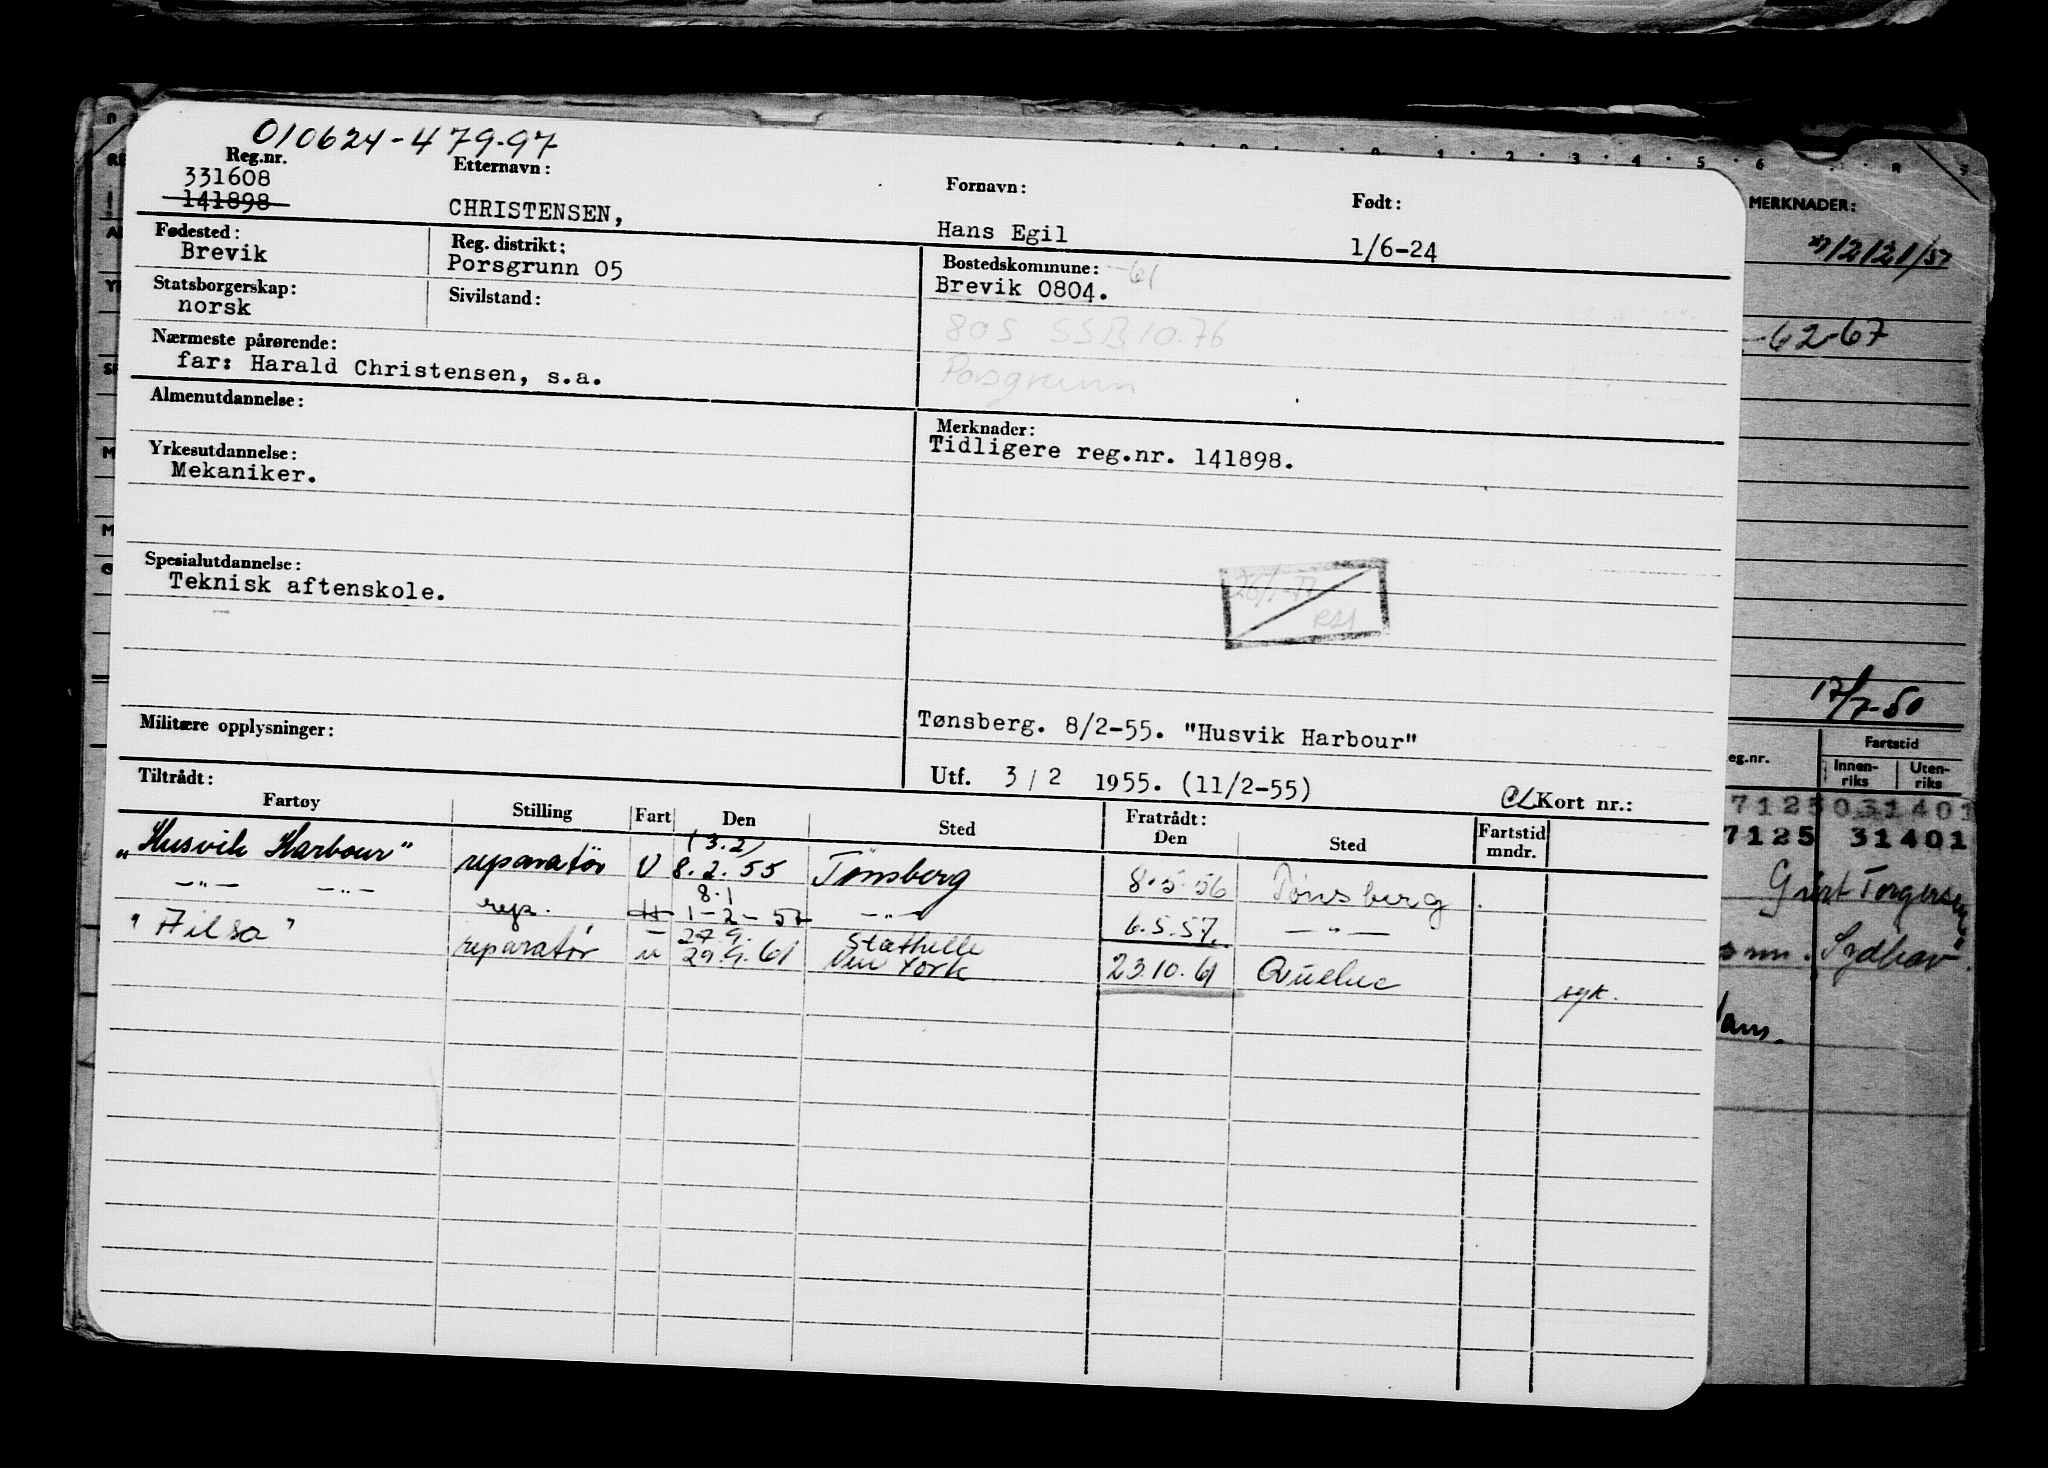 010624-479.97
Reg.nr. Etternavn: Fornavn: Født:
331608
141898 CHRISTENSEN, Hans Egil 1/6-24
Fødested: Reg. distrikt: Bostedskommune: -61
Brevik Porsgrunn 05 Brevik 0804.
Statsborgerskap: Sivilstand:
norsk 805 SSB 10.76
Nærmeste pårørende: Porsgrunn
far: Harald Christensen, s.a.
Almenutdannelse: Merknader:
Tidligere reg.nr. 141898.
Yrkesutdannelse:
Mekaniker.
Spesialutdannelse:
Teknisk aftenskole.
Militære opplysninger: Tønsberg. 8/2-55. "Husvik Harbour"
Utf. 3/2 1955. (11/2-55) Kort nr.:
Tiltrådt: Fratrådt:
Fartøy Stilling Fart Den Sted Den Sted Fartstid mndr.
(3.2)
"Husvik Harbour" reparatør U 8.2.55 Tønsberg 8.5.56 Tønsberg
8.1
-"- -"- rep. H 1-2-57 -"- 6.5.57. -"-
27.9. Stathelle
"Ailsa" reparatør u 29.9.61 New York 23.10.61 Quebec syk.
MERKNADER:
-62-67
17/7-60
eg.nr. Fartstid
Innenriks Utenriks
7125 031401
7125 31401
Torgersen
Sydhav